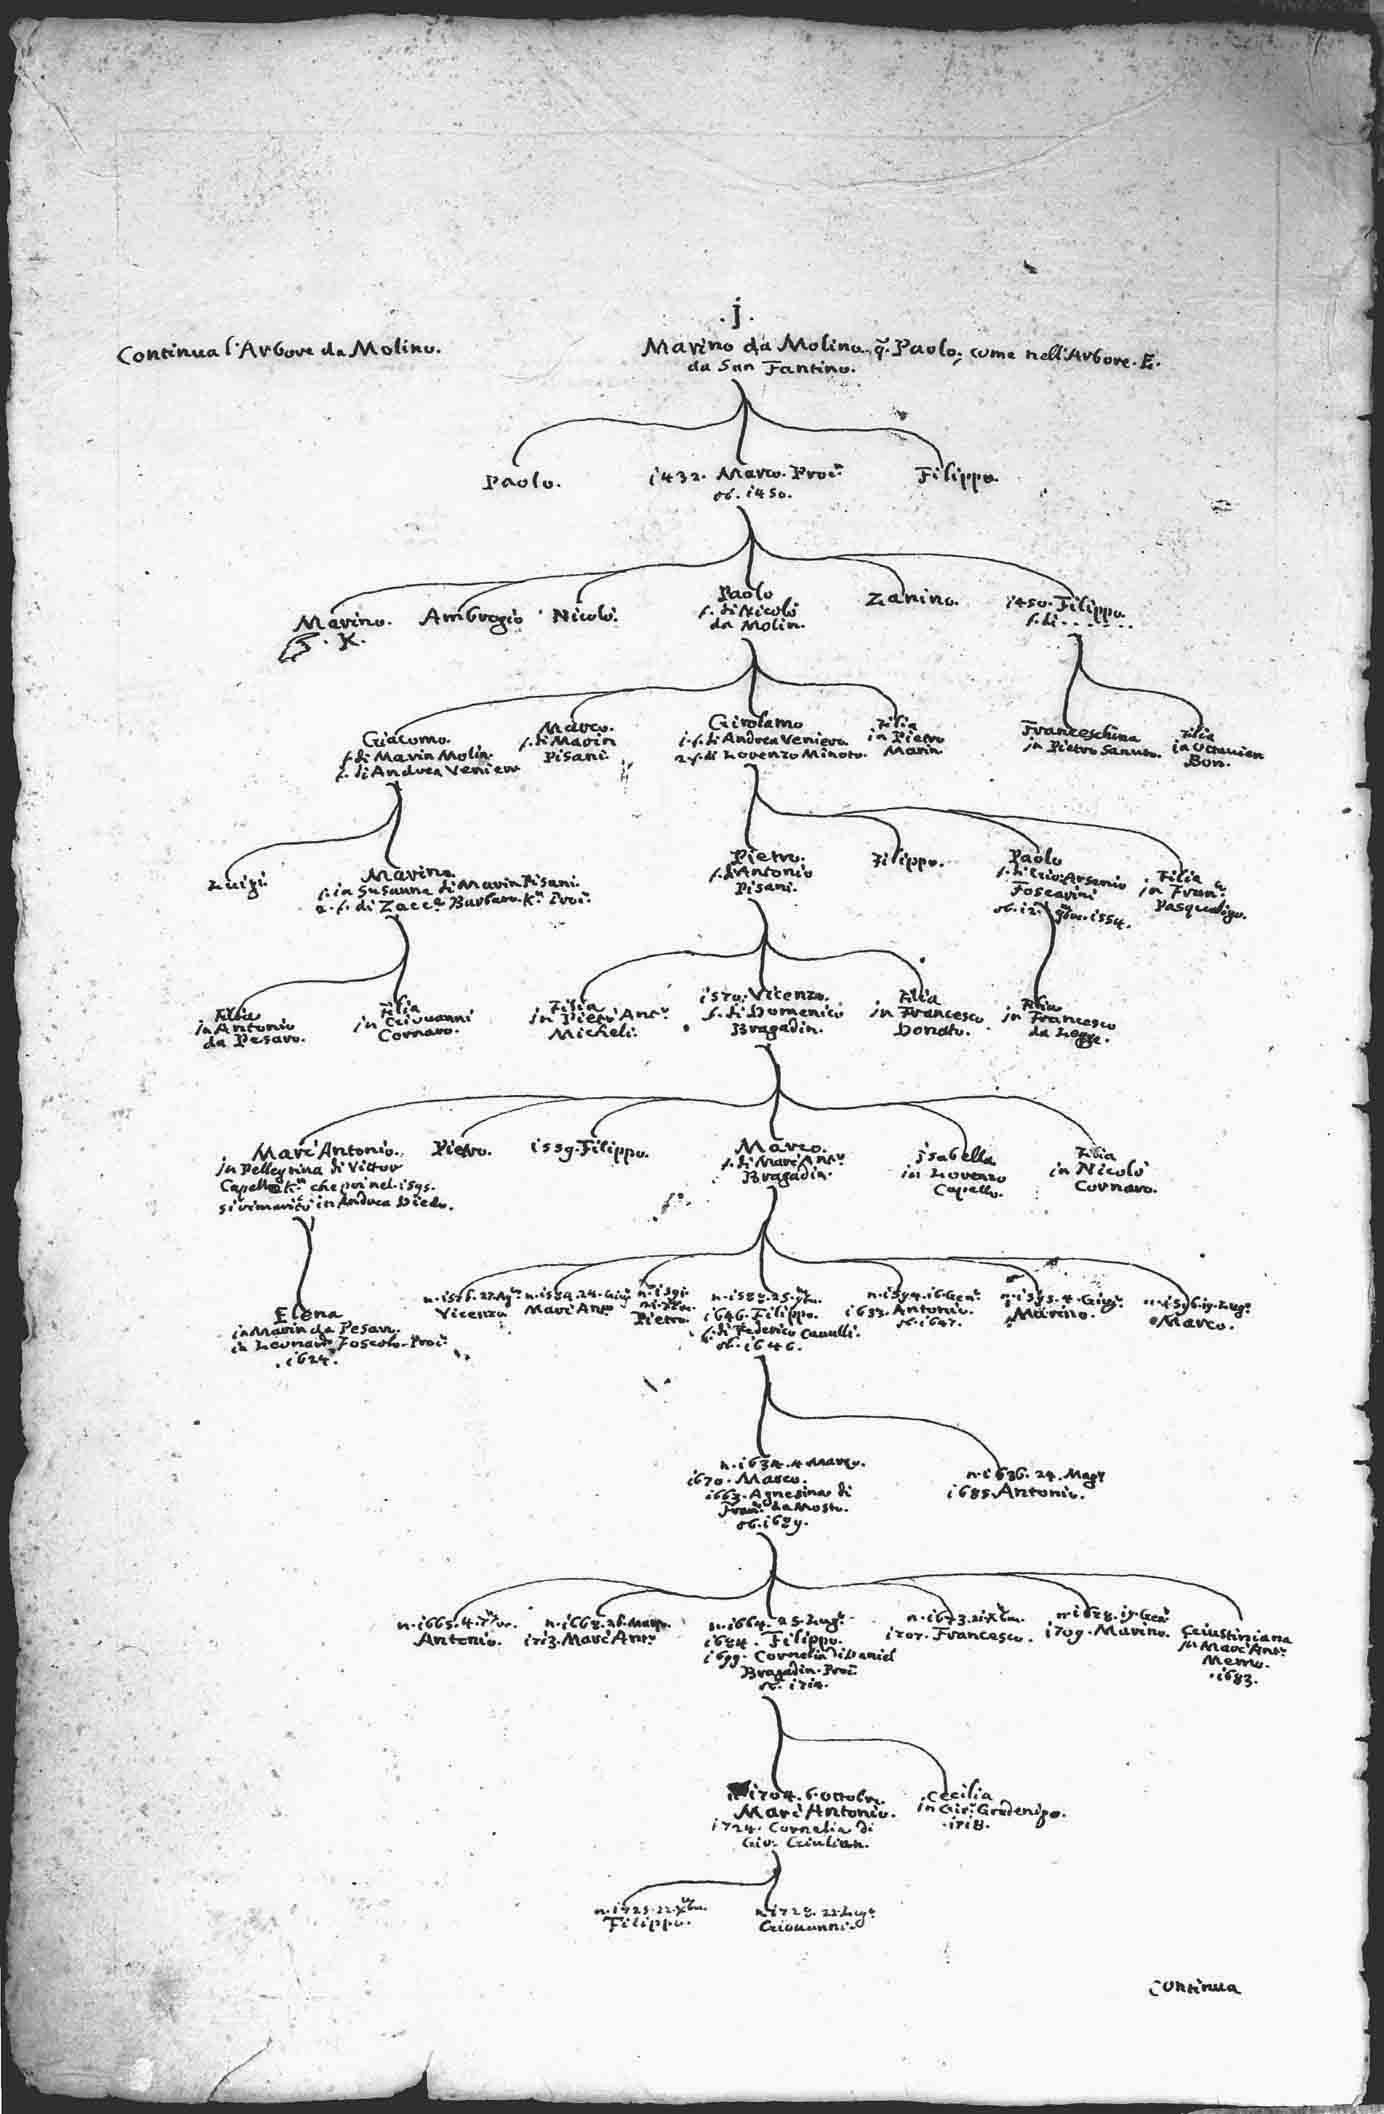 . j .
Continua l'Arbore da Molino.
Marino da Molino. q. Paolo, come nell'Arbore. E.
da San Fantino.
Paolo.
1432. Marco. Proc.r
ob. 1450.
Filippo.
Marino.
. K.
Ambrogio
Nicolò.
Paolo
f. di Nicolò
da Molin.
Zanino.
1450. Filippo.
f. di . . . . . .
Giacomo.
f. di Marin Molin.
f. di Andrea Venier
Marco.
f. di Marin
Pisani.
Girolamo
1. f. di Andrea Veniera
2. f. di Lorenzo Minoto.
Filia
in Pietro
Marin
Franceschina
in Pietro Sanuto.
Filia
in Octavien
Bon.
Luigi.
Marino
1. in Susanna di Marin Pisani.
2. f. di Zacc.a Barbaro. K.r Proc.r
Pietro.
f. di Antonio
Pisani.
Filippo.
Paolo
f. di Arsenio
Foscarini
ob. 12. 9bre. 1554.
Filia
in Fran.co
Pasqualigo.
Filia
in Antonio
da Pesaro.
Filia
in Giovanni
Cornaro.
Filia
in Pietro Ant.o
Micheli.
1570. Vicenzo.
f. di Domenico
Bragadin.
Filia
in Francesco
Donato.
Filia
in Francesco
da Legge.
Marc'Antonio.
in Pellegrina di Vittor
Capello K.r che poi nel. 1595.
si rimaritò in Andrea Diedo.
Pietro.
1559. Filippo.
Marco.
f. di Marc'Ant.o
Bragadin.
Isabella
in Lorenzo
Capello.
Filia
in Nicolò
Cornaro.
Elena
in Marin da Pesaro.
in Leonardo Foscolo. Proc.r
. 1624.
Vicenzo
Marc'Ant.o
n. 1591.
Pietro.
n. 1588. 25.
1646. Filippo.
f. di Federico Cavalli.
ob. 1646.
n. 1594. 16. Gen.o
1633. Antonio.
ob. 1647.
n. 1595. 4. Giug.o
Marino.
n. 1596. 19. Lug.o
Marco.
n. 1634. 4. Marzo.
1670. Marco.
1663. Agnesina di
Fran.co da Mosto.
ob. 1689.
n. 1636. 24. Magg.
1685. Antonio.
n. 1665. 4. 7bre.
Antonio.
n. 1668. 26. Magg.
1713. Marc'Ant.o
n. 1664. 25. Lug.o
1684. Filippo.
1699. Cornelia di Daniel
Bragadin. Proc.r
ob. 1714.
n. 1673. 21. Xbre.
1707. Francesco.
n. 1678. 19. Gen.
1709. Marino.
Giustiniana
in Marc'Ant.o
Memo.
. 1683.
n. 1704. 6. Ottobre.
Marc'Antonio.
1724. Cornelia di
Gio. Giulian.
Cecilia
in Gir.o Gradenigo.
. 1718.
n. 1725. 22. Xbre.
Filippo.
n. 1728. 22. Lug.o
Giovanni.
continua